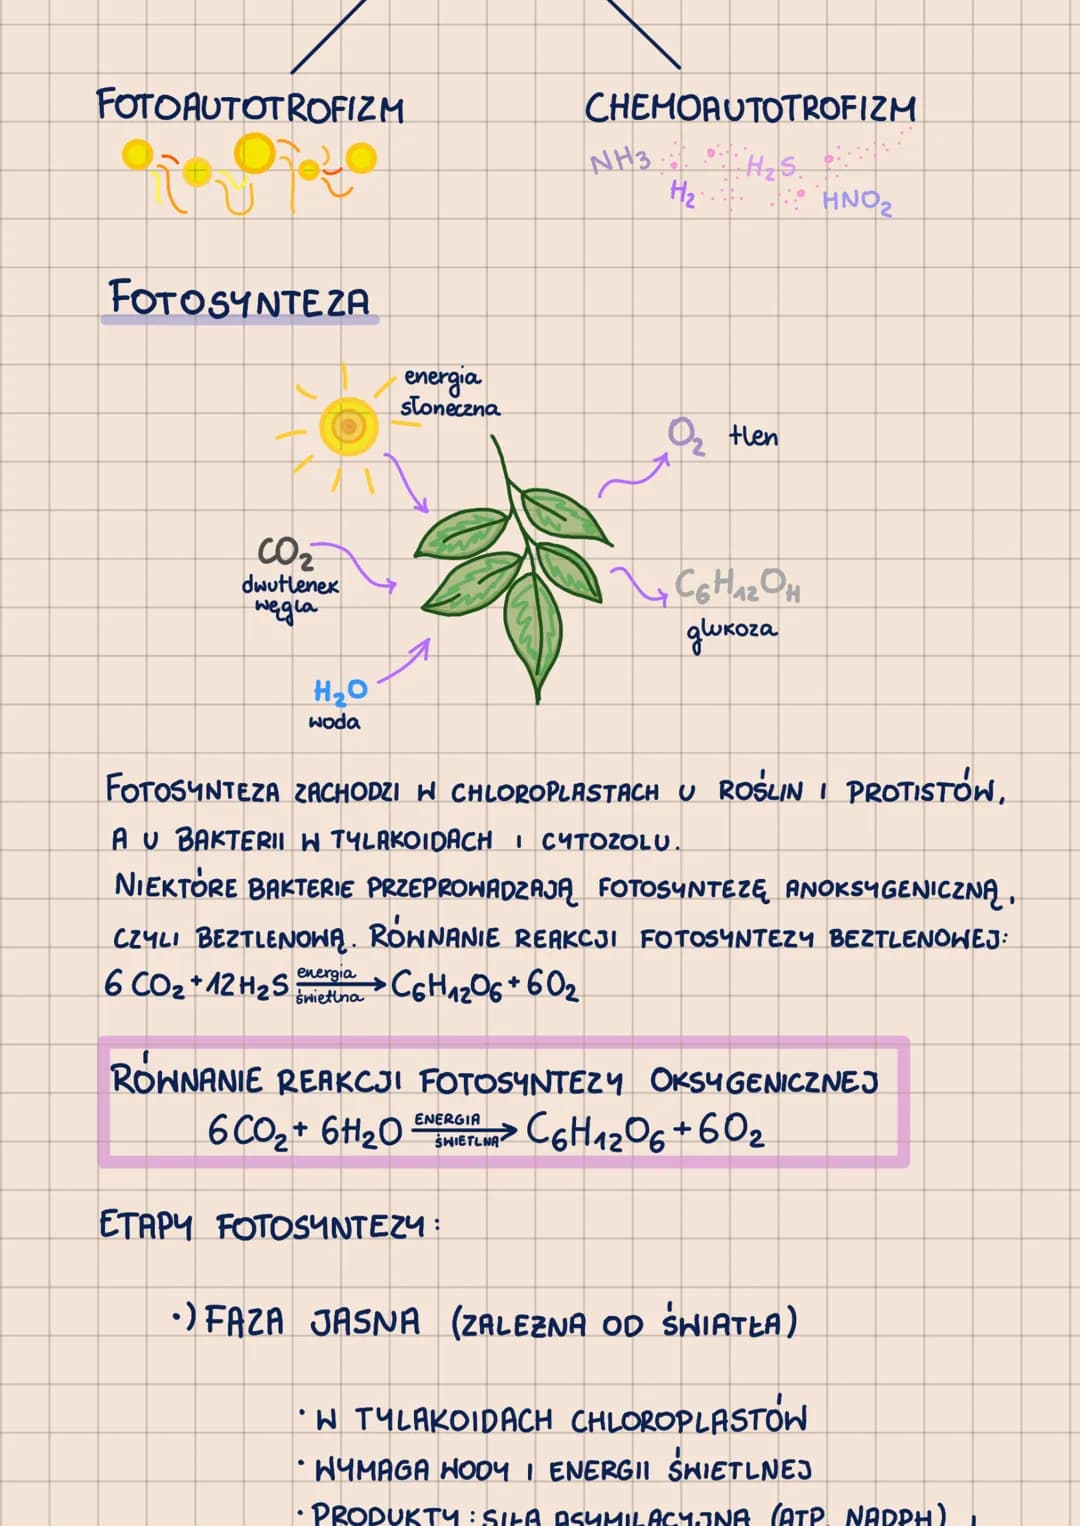 FOTOAUTOTROFIZM
CHEMOAUTOTROFIZM
NH3
H₂S
H₂
HNO₂
FOTOSYNTEZA
energia
słoneczna
O₂ tlen
CO₂
dwutlenek
węgla
C₆H₁₂OH
glukoza
H₂O
woda
FOTOSYNTEZA ZACHODZI W CHLOROPLASTACH U ROŚLIN I PROTISTÓW,
A U BAKTERII W TYLAKOIDACH I CYTOZOLU.
NIEKTÓRE BAKTERIE PRZEPROWADZAJĄ FOTOSYNTEZĘ ANOKSYGENICZNĄ,
CZYLI BEZTLENOWĄ. RÓWNANIE REAKCJI FOTOSYNTEZY BEZTLENOWEJ:
6 CO₂ + 12 H₂S energia świetlna → C₆H₁₂O₆ + 6O₂
RÓWNANIE REAKCJI FOTOSYNTEZY OKSYGENICZNEJ
6CO₂ + 6H₂O ENERGIA ŚWIETLNA → C₆H₁₂O₆ + 6O₂
ETAPY FOTOSYNTEZY:
·) FAZA JASNA (ZALEŻNA OD ŚWIATŁA)
· W TYLAKOIDACH CHLOROPLASTÓW
· WYMAGA WODY I ENERGII ŚWIETLNEJ
· PRODUKTY: SIŁA ASYMILACYJNA (ATP, NADPH) I